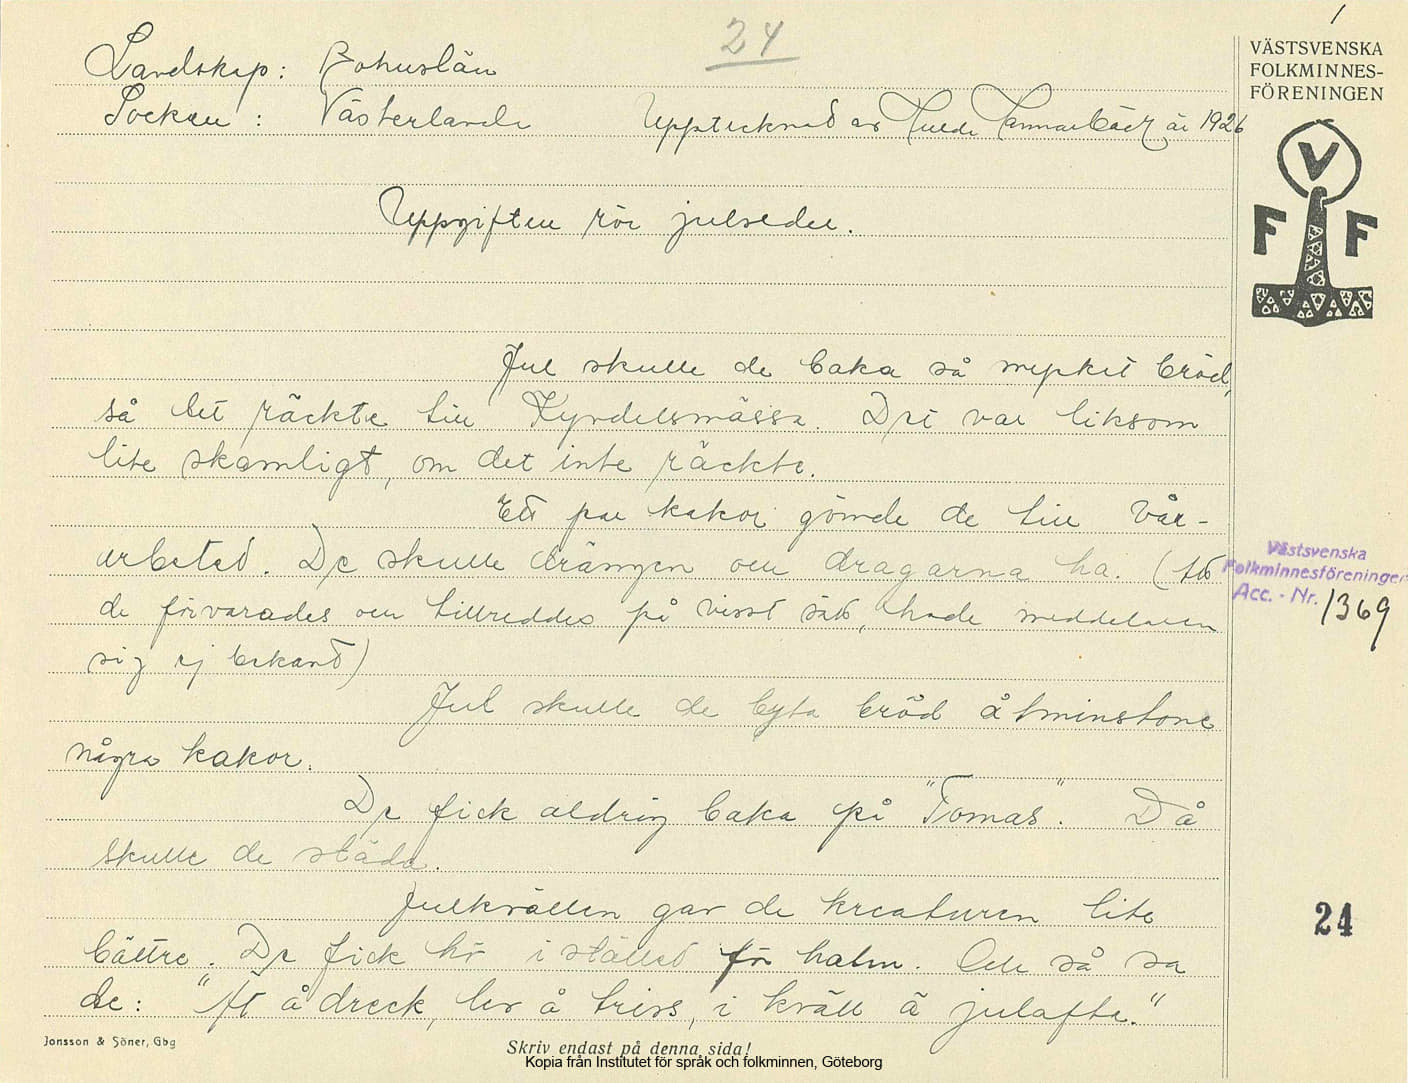 24
1
Landskap: Bohuslän
Socken: Västerlanda Upptecknad av Hulda Hammarbäck år 1926
VÄSTSVENSKA
FOLKMINNES-
FÖRENINGEN
V
F F
Uppgiften rör julseder.
Jul skulle de baka så mycket bröd,
så det räckte till Kyndelsmässa. Det var liksom
lite skamligt, om det inte räckte.
Ett par kakor gömde de till vår-
arbetet. De skulle drängen och dragarna ha. (Att
de förvarades och tillreddes på visst sätt, hade meddelaren
sig ej bekant)
Västsvenska
Folkminnesföreningen
Acc. - Nr. 1369
Jul skulle de byta bröd åtminstone
några kakor.
De fick aldrig baka på "Tomas". Då
skulle de städa.
Julkvällen gav de kreaturen lite
bättre. De fick hö i stället för halm. Och så sa
de: "Ät å dreck, lev å trivs, i kväll ä julafta."
24
Jonsson & Söner, Gbg
Skriv endast på denna sida!
Kopia från Institutet för språk och folkminnen, Göteborg